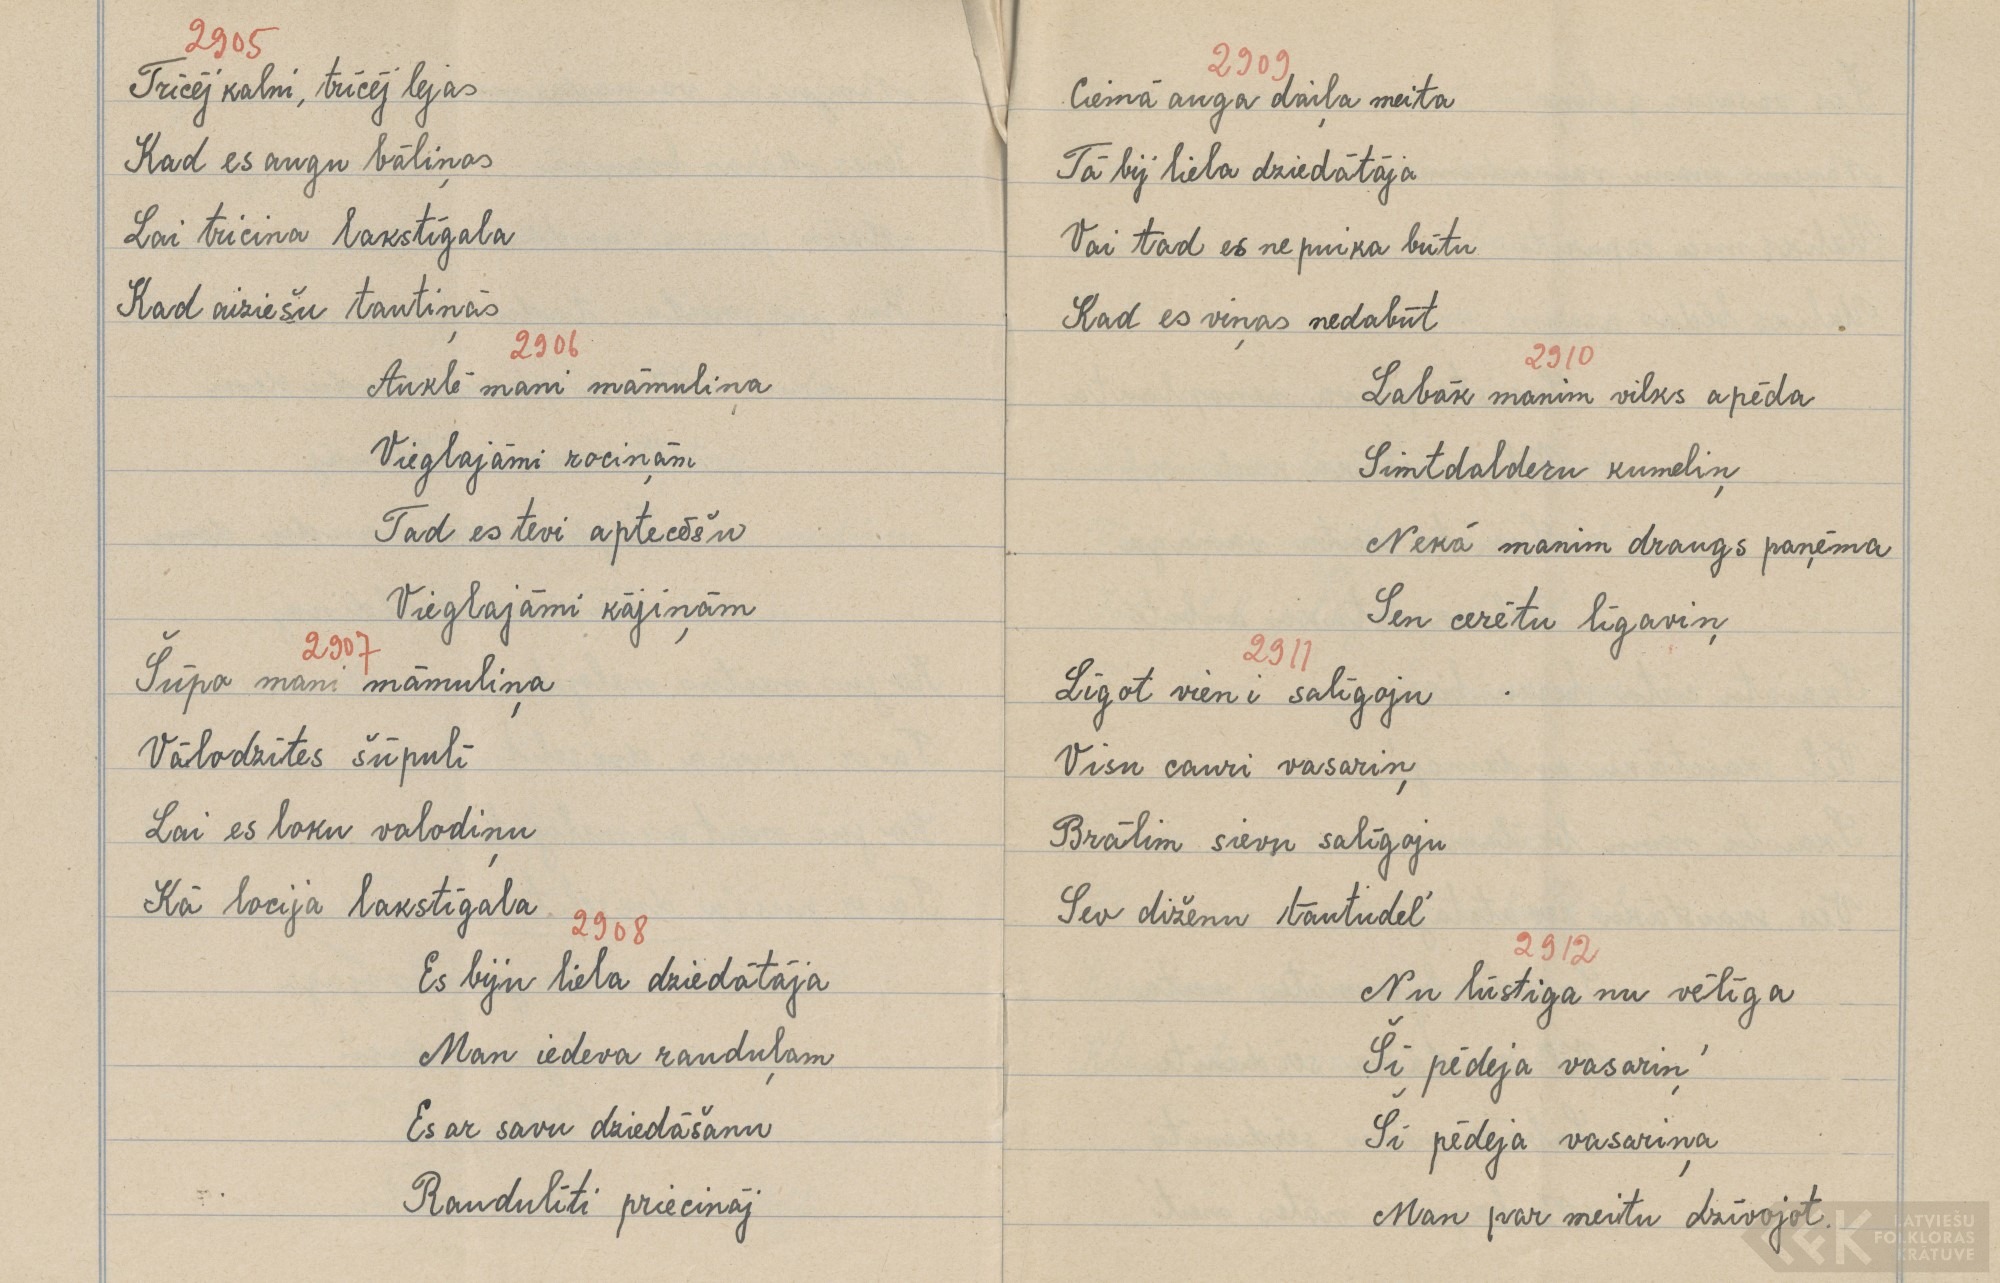 2905
Trīcēj' kalni, trīcēj' lejas
Kad es augu bāliņos
Lai tricina lakstīgala
Kad aiziešu tautiņās
2906
Auklē mani māmuliņa
Vieglajāmi rociņām
Tad es tevi aptecēšu
Vieglajāmi kājiņām
2907
Šūpo mani māmuliņa
Vālodzītes šūpulī
Lai es loku valodiņu
Kā locija lakstīgala
2908
Es biju liela dziedātāja
Man iedeva rauduļam
Es ar savu dziedāšanu
Raudulīti priecināj
2909
Ciemā auga daiļa meita
Tā bij' liela dziedātāja
Vai tad es ne puika būtu
Kad es viņas nedabūt
2910
Labāk manim vilks apēda
Simtdalderu kumeliņ
Nekā manim draugs paņēma
Sen cerētu līgaviņ
2911
Līgot vien i salīgoju
Visu cauri vasariņ
Brālim sievu salīgoju
Sev diženu tautudēl'
2912
Nu lūstiga nu vēlīga
Šī pēdeja vasariņ'
Šī pēdeja vasariņa
Man par meitu dzīvojot.
LATVIEŠU
FOLKLORAS
KRĀTUVE